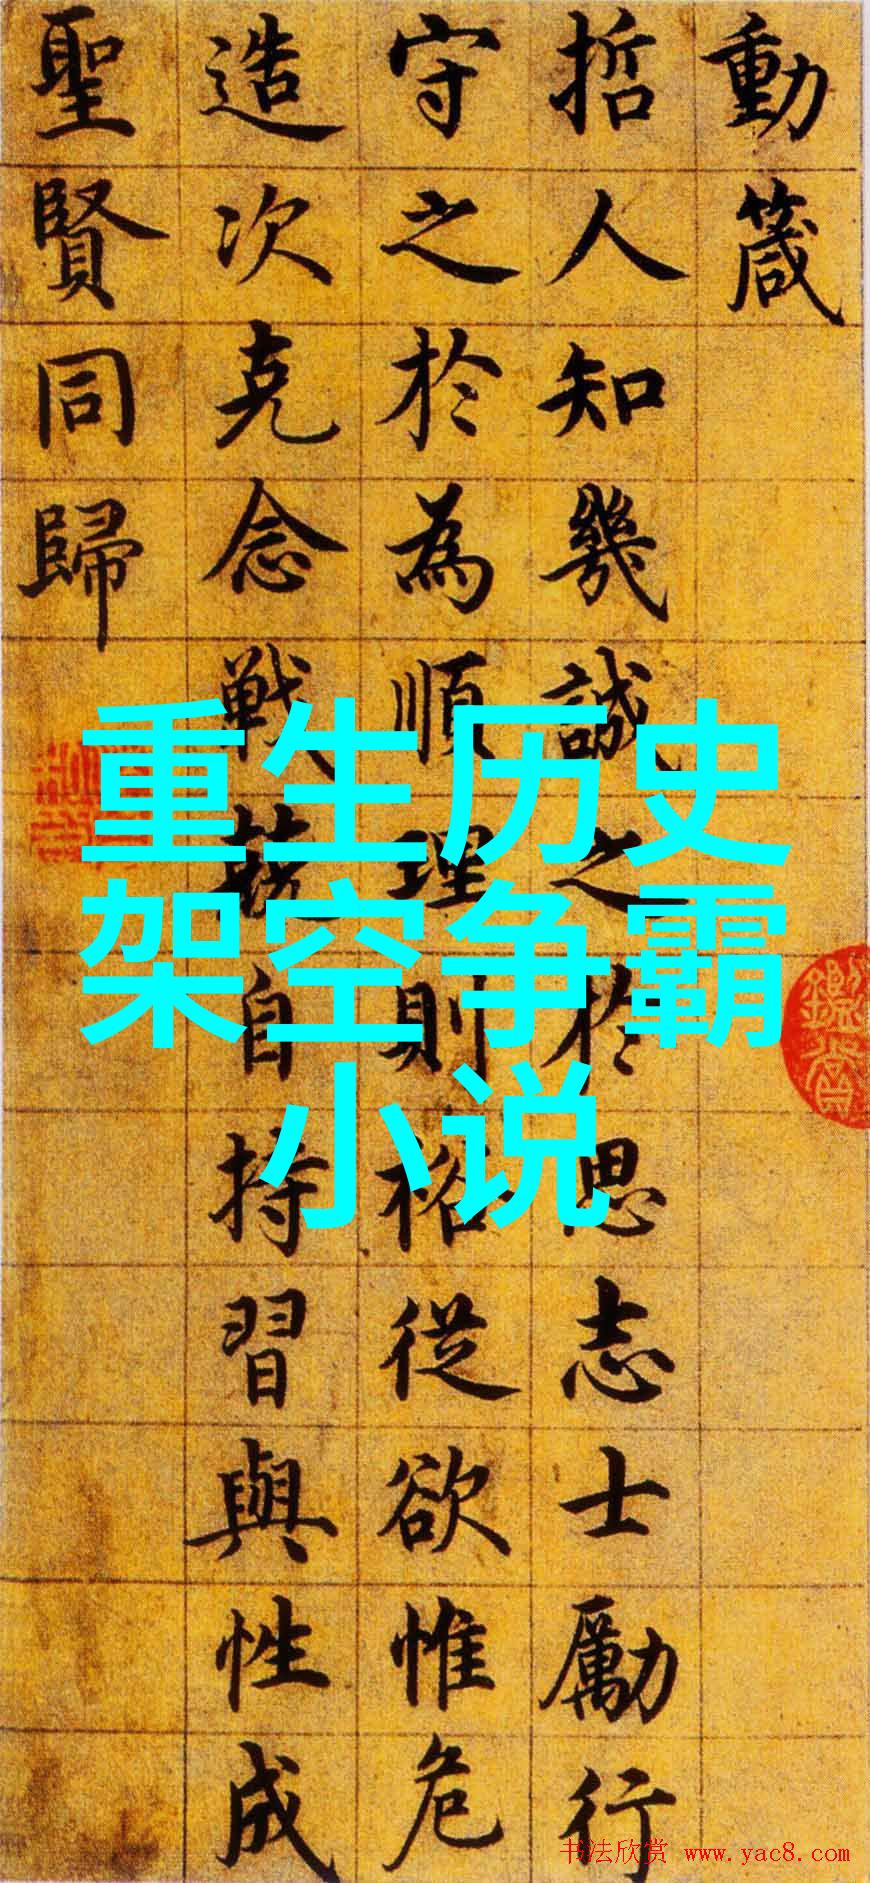 動箴
哲人知幾誠之於思志士勵行
守之於為順理則裕從欲惟危
造次克念戰兢自持習與性成
聖賢同歸
重生历史
架空争霸
小说
书法欣赏 www.yac8.com